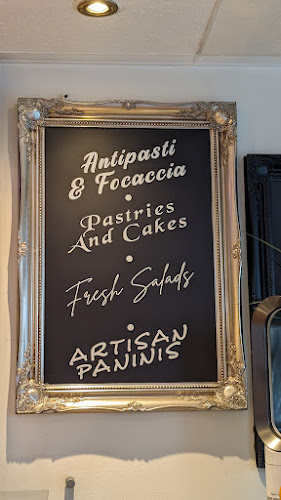 Antipasti
& Focaccia
•
Pastries
And Cakes
•
Fresh Salads
•
ARTISAN
PANINIS